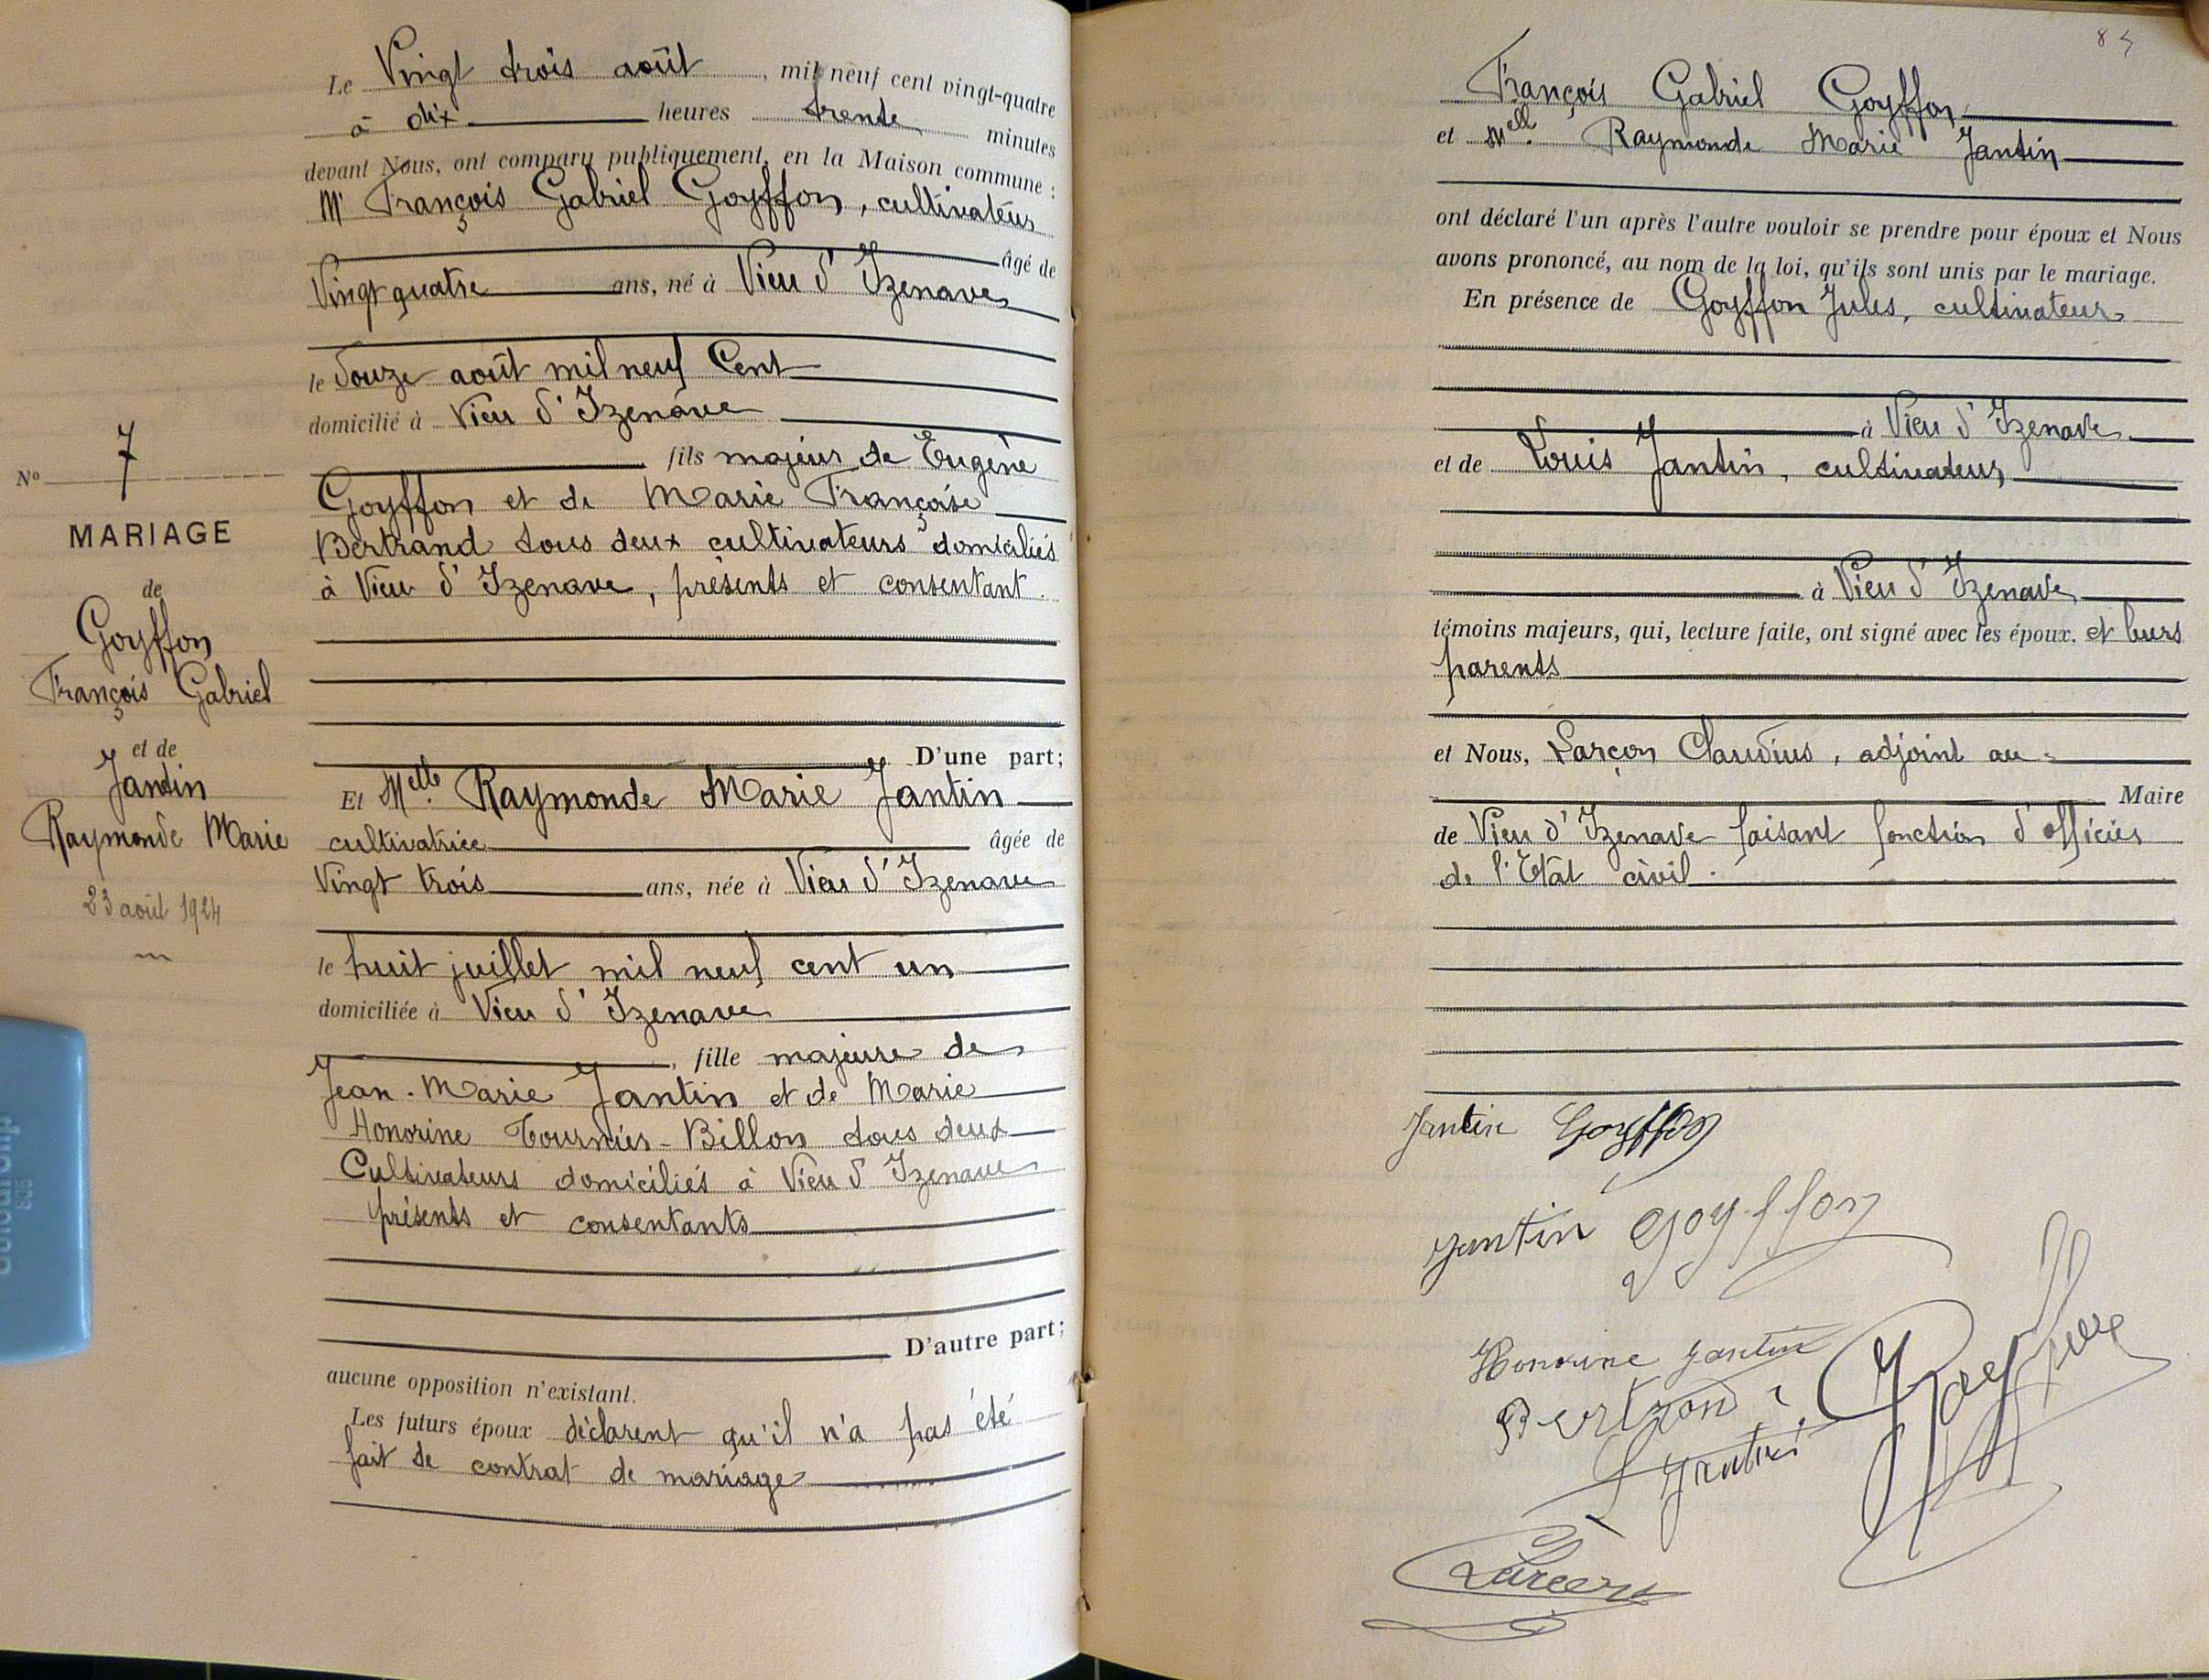 N° 7
MARIAGE
de
Goyffon
François Gabriel
et de
Jantin
Raymonde Marie
23 août 1924
Le Vingt trois août, mil neuf cent vingt-quatre
à dix heures trente minutes
devant Nous, ont comparu publiquement, en la Maison commune :
Mr François Gabriel Goyffon, cultivateur
âgé de
Vingt quatre ans, né à Vieu d'Izenave
le douze août mil neuf Cent
domicilié à Vieu d'Izenave
fils majeur de Eugène
Goyffon et de Marie Françoise
Bertrand tous deux cultivateurs domiciliés
à Vieu d'Izenave, présents et consentant.
D'une part;
Et Melle Raymonde Marie Jantin
cultivatrice âgée de
Vingt trois ans, née à Vieu d'Izenave
le huit juillet mil neuf cent un
domiciliée à Vieu d'Izenave
, fille majeure de
Jean-Marie Jantin et de Marie
Honorine Tournier-Billon tous deux
Cultivateurs domiciliés à Vieu d'Izenave
présents et consentants
D'autre part;
aucune opposition n'existant.
Les futurs époux déclarent qu'il n'a pas été
fait de contrat de mariage
François Gabriel Goyffon
et Melle Raymonde Marie Jantin
ont déclaré l'un après l'autre vouloir se prendre pour époux et Nous
avons prononcé, au nom de la loi, qu'ils sont unis par le mariage.
En présence de Goyffon Jules, cultivateur
à Vieu d'Izenave
et de Louis Jantin, cultivateur
à Vieu d'Izenave
témoins majeurs, qui, lecture faite, ont signé avec les époux. et leurs
parents
et Nous, Larçon Claudius, adjoint au
Maire
de Vieu d'Izenave faisant fonction d'officier
de l'Etat civil.
Jantin Goyffon
Jantin Goyffon
Honorine Jantin
Bertrand
L Jantin
Larçon